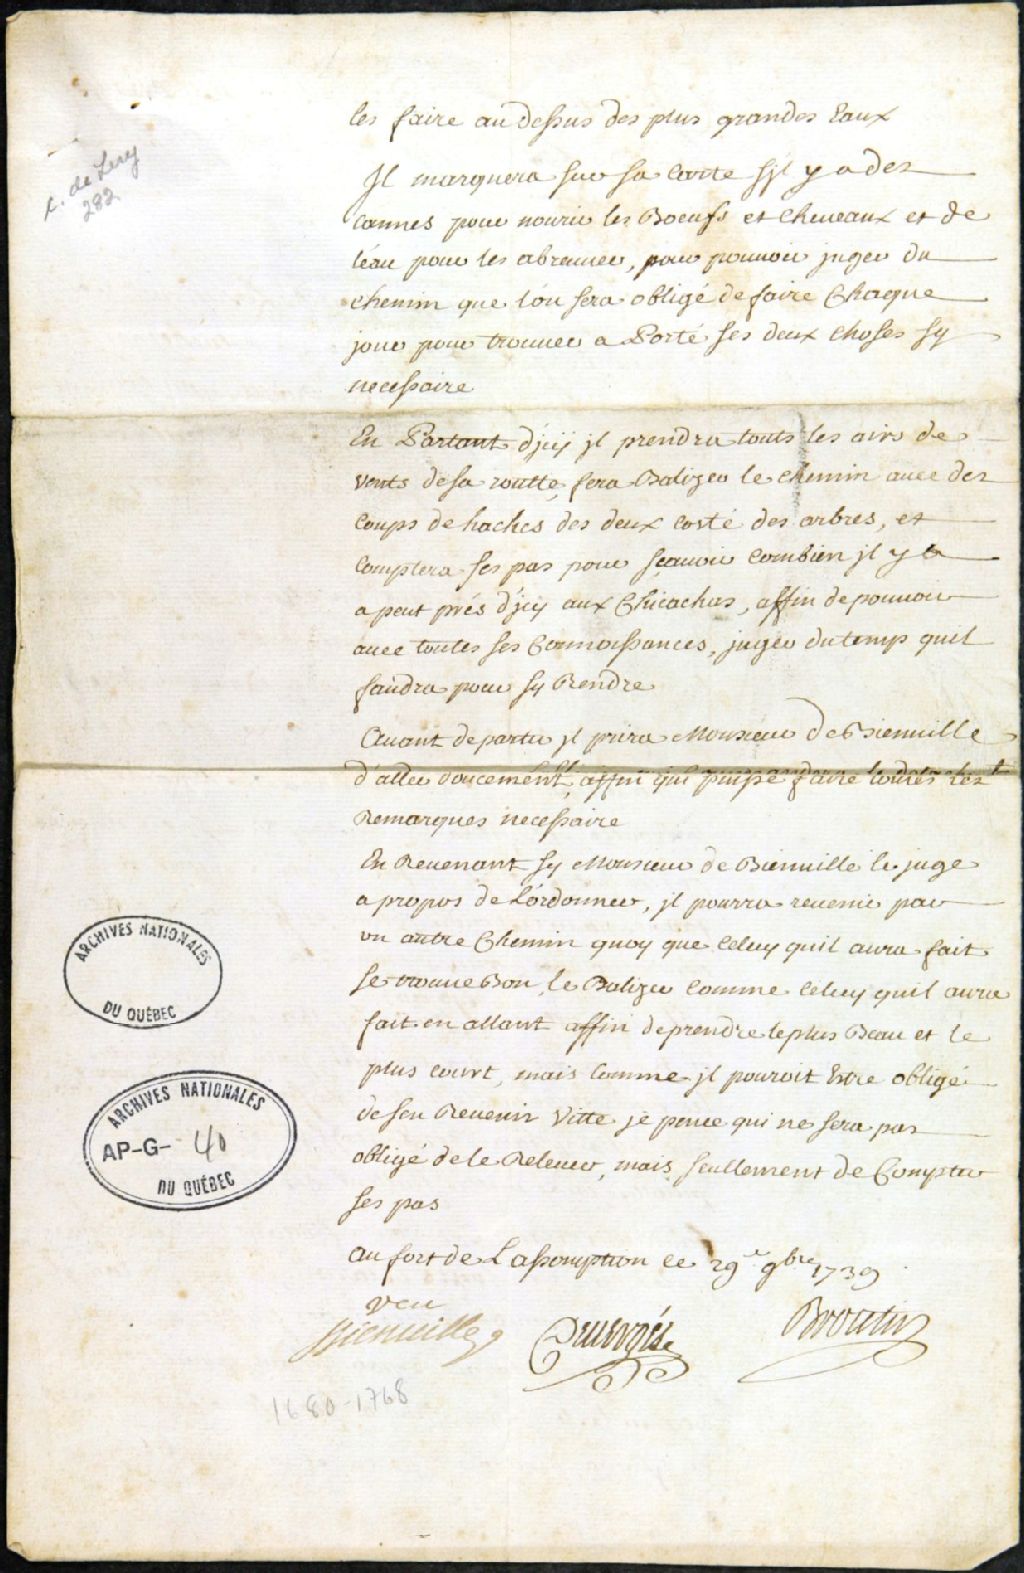 c. de Lery
282
les faire au dessus des plus grandes Eaux
Il marquera sur sa Carte s'jl y a des
Cannes pour nourir les Boeufs et Cheveaux et de
l'eau pour les abreuver, pour pouvoir juger du
chemin que l'on sera obligé de faire Chaque
jour pour trouver a Porté ses deux choses sy
necessaire
En Partant d'jcy jl prendra touts les airs de
vents de sa routte, fera Balizer le chemin avec des
Coups de haches des deux costé des arbres, et
Comptera ses pas pour sçavoir Combien jl y a
a peut prés d'jcy aux Chicachas, affin de pouvoir
avec toutes ses Connoissances, juger du temp quil
faudra pour sy Rendre
Avant de partir jl prira Monsieur de Bienville
d'aller doucement, affin qui puisse faire toutes les
Remarques necessaire
En Revenant sy Monsieur de Bienville le juge
a propos de L'ordonner, jl pourra revenir par
un autre Chemin quoy que Celuy quil aura fait
se trouve Bon, le Balizer Comme Celuy quil aura
fait en allant affin de prendre le plus Beau et le
plus court, mais Comme jl pouroit Estre obligé
de s'en Revenir Vitte je pence qui ne sera pas
obligé de le Relever, mais seullement de Compter
ses pas
au fort de L'assomption ce 29e 9bre 1739
veu
Bienville
Broutin
1680-1768
ARCHIVES NATIONALES
DU QUÉBEC
ARCHIVES NATIONALES
AP-G- 40
DU QUÉBEC